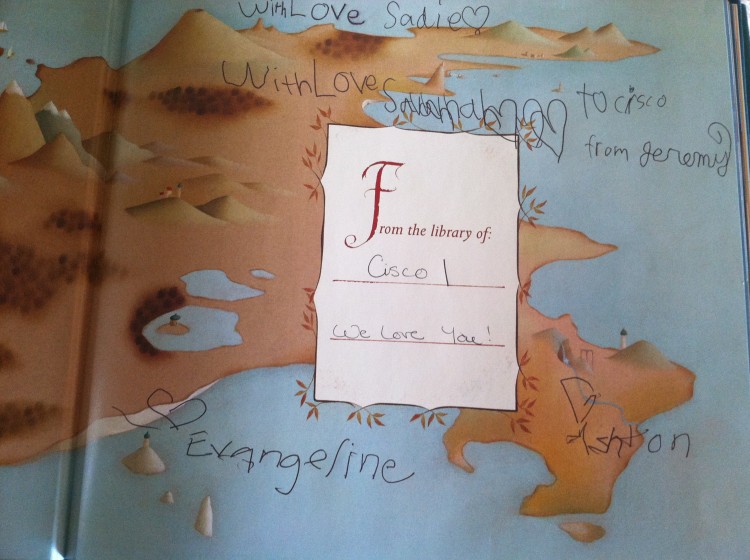 With LOVE Sadie
With Love Savannah
to cisco
from jeremy
From the library of:
Cisco
We Love You!
Evangeline
Ashton